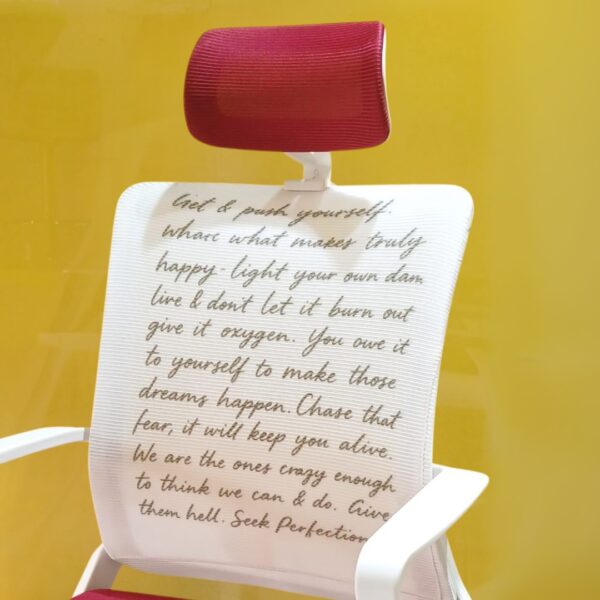 Get & push yourself.
whare what makes truly
happy - light your own dam
live & don't let it burn out
give it oxygen. You owe it
to yourself to make those
dreams happen. Chase that
fear, it will keep you alive.
We are the ones crazy enough
to think we can & do. Give
them hell. Seek Perfection